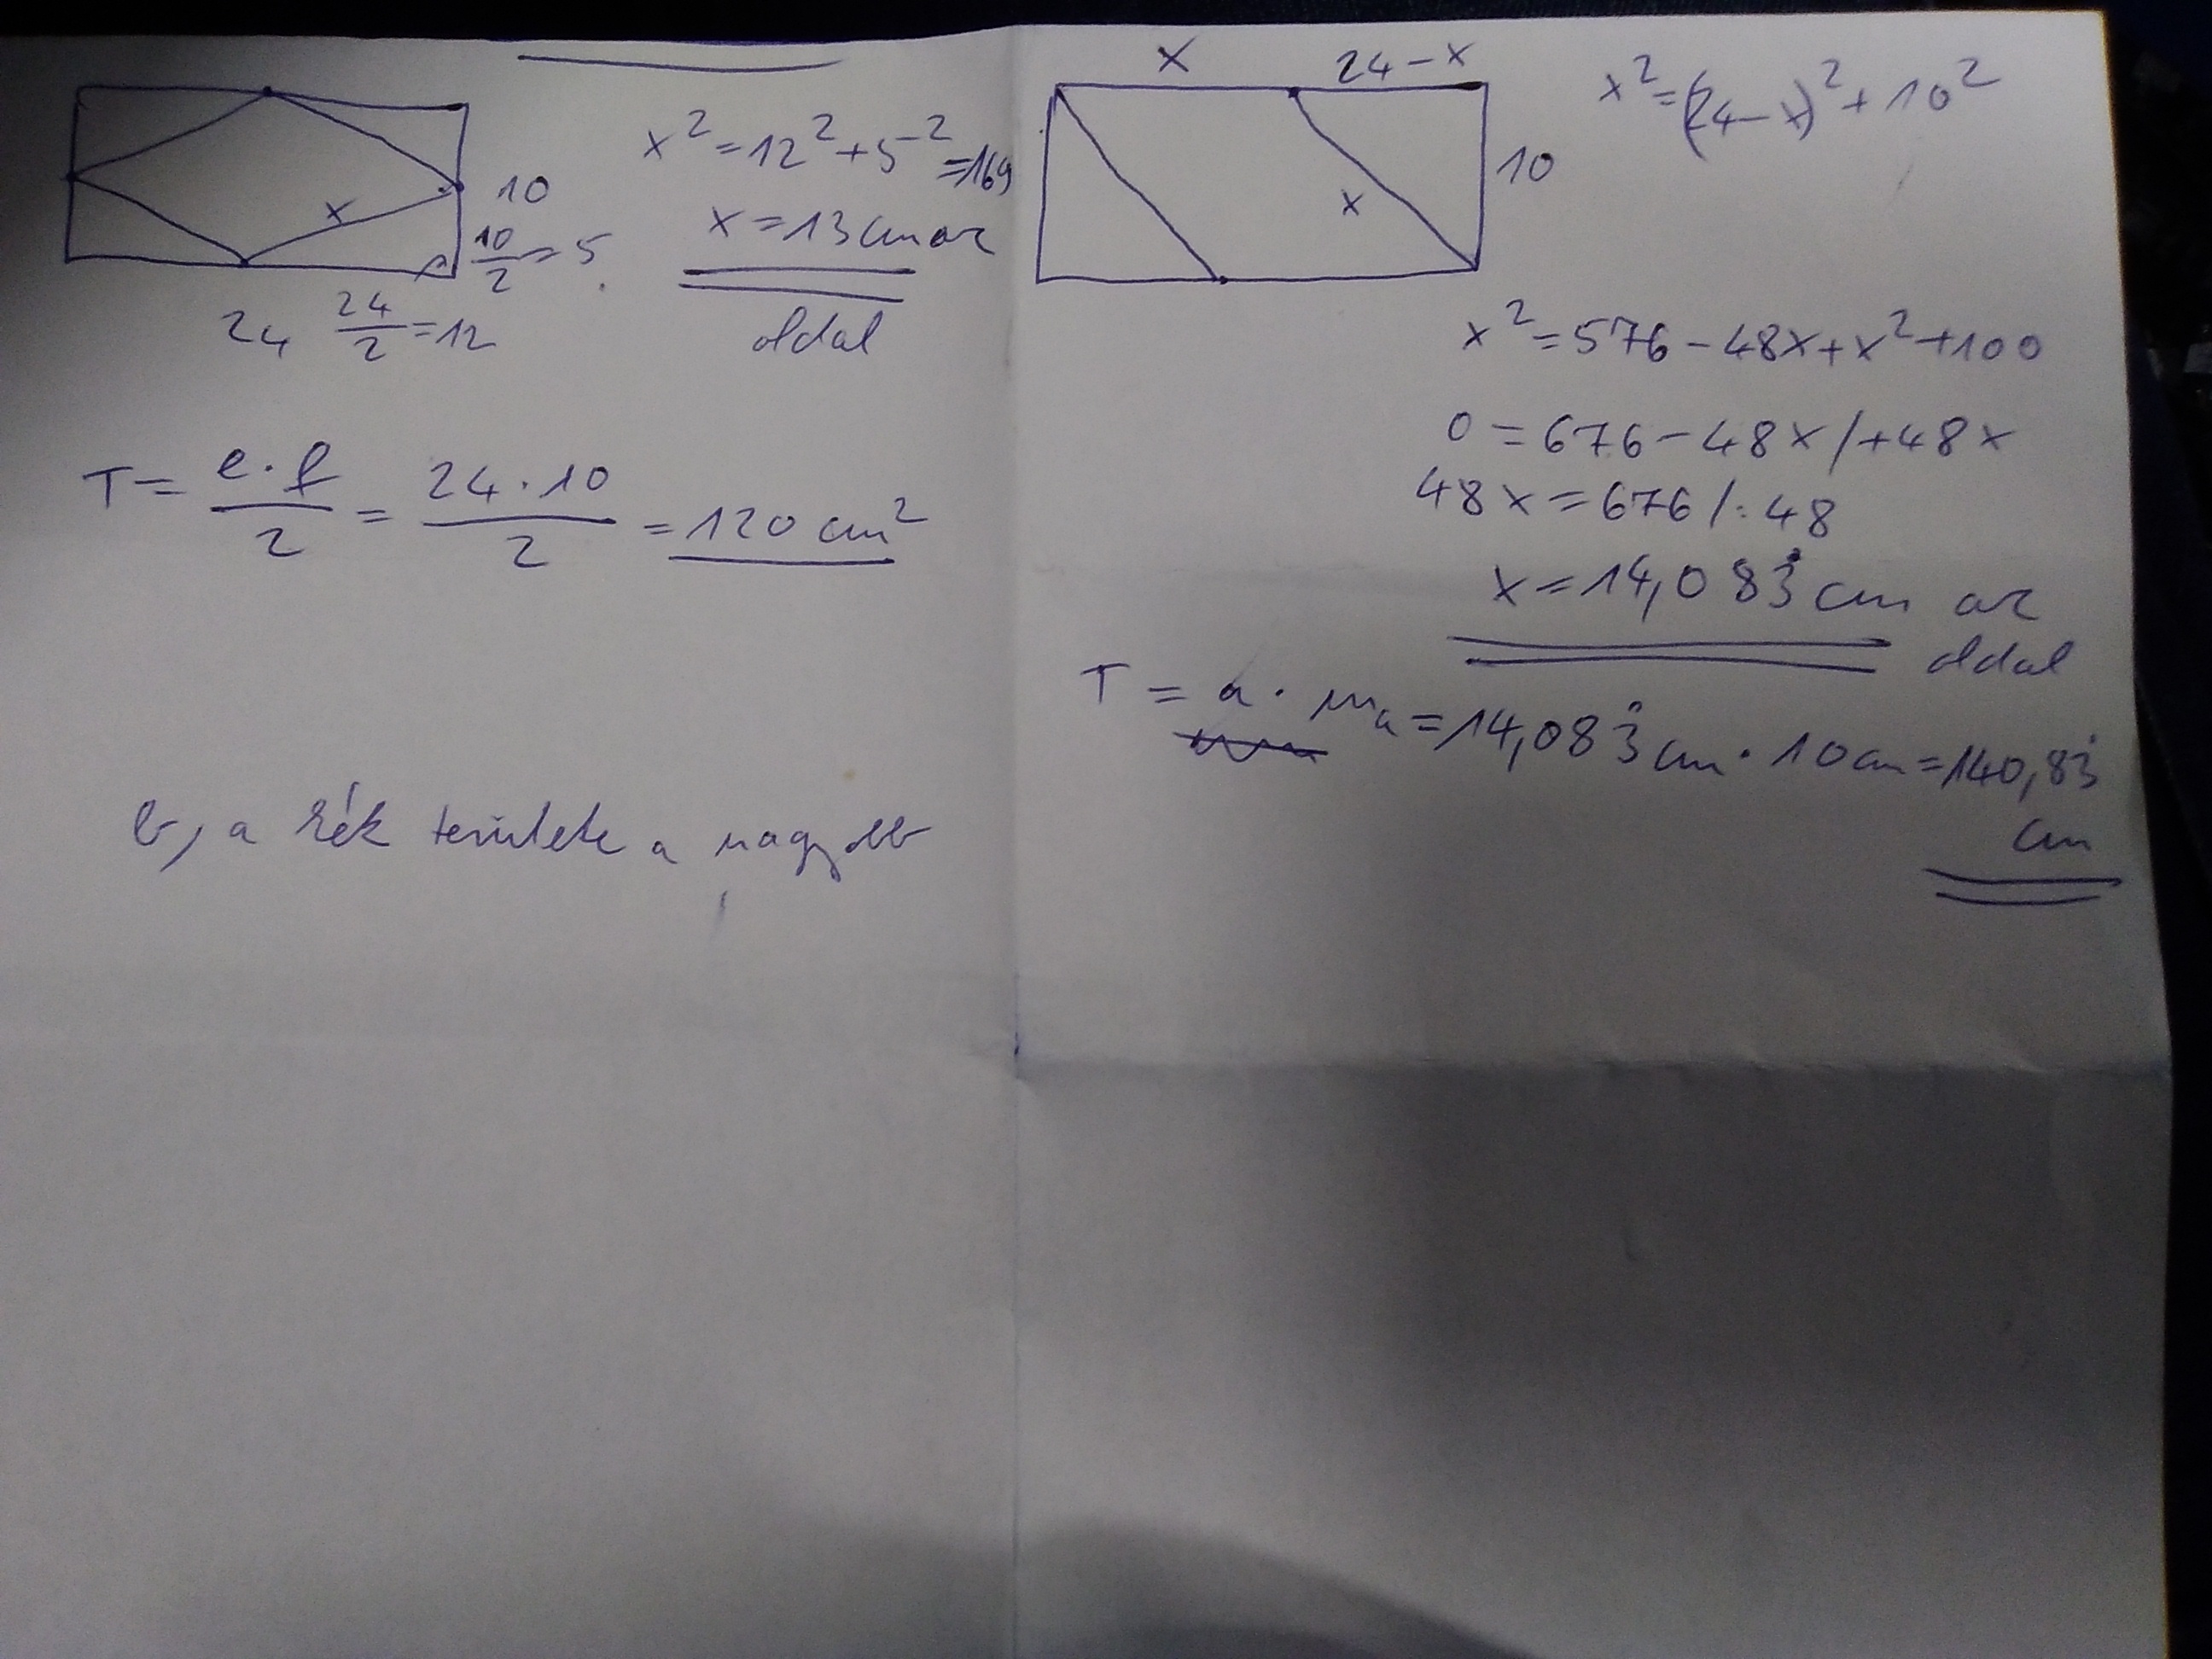 x² = 12² + 5² = 169
x = 13 cm az
oldal
x
10
10/2 = 5
24
24/2 = 12
T = e·f/2 = 24·10/2 = 120 cm²
b, a kék területe a nagyobb
x
24 - x
x
10
x² = (24 - x)² + 10²
x² = 576 - 48x + x² + 100
0 = 676 - 48x /+48x
48x = 676 /:48
x = 14,083̇ cm az
oldal
T = a · mₐ = 14,083̇ cm · 10 cm = 140,83̇
cm